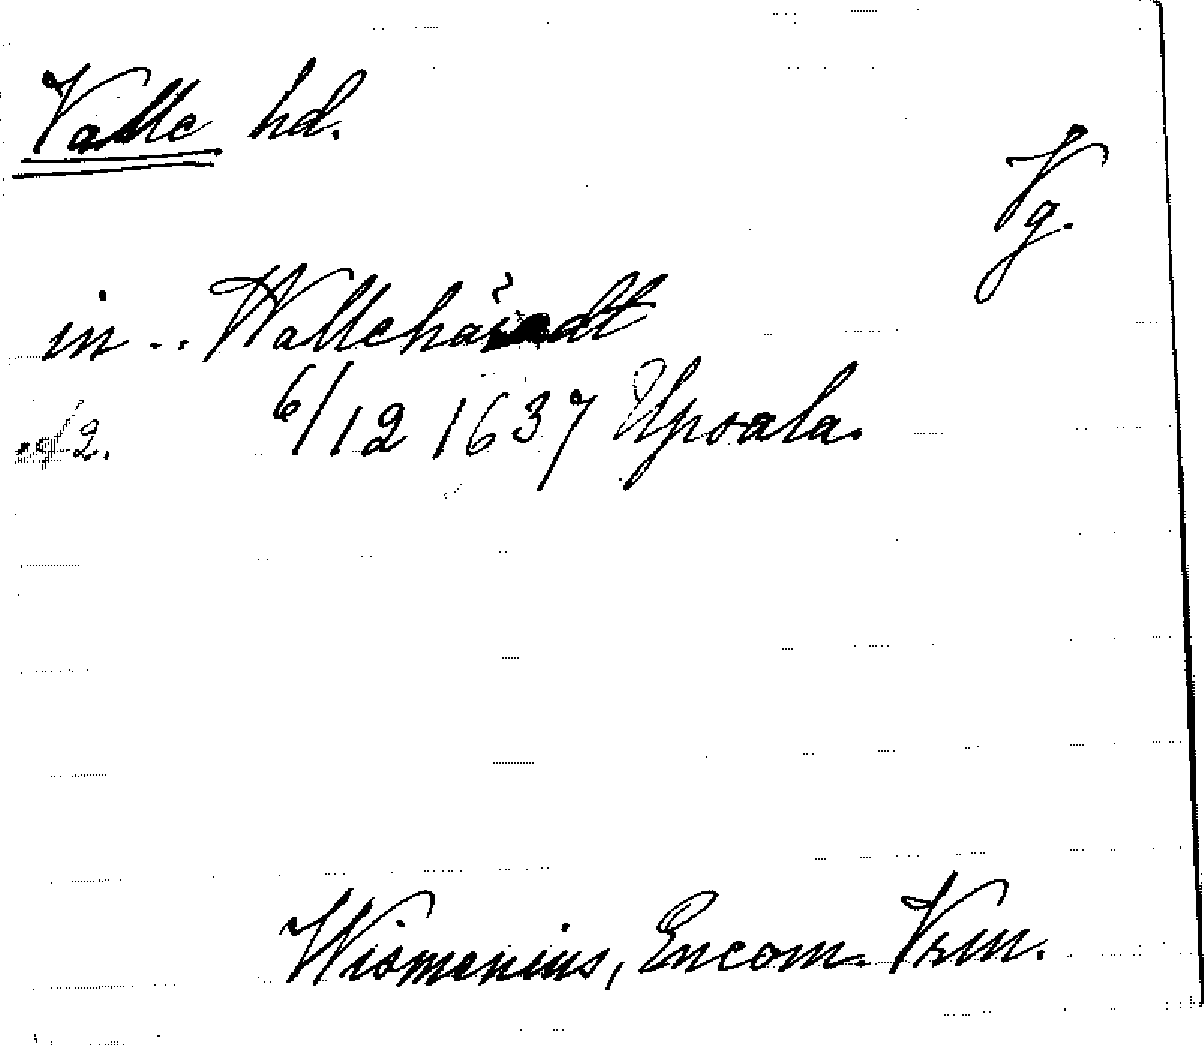 Valle hd.
Vg.
in .. Wallehäradt
6/12 1637 Upsala.
2.
Wismenius, Encom. Vrm.